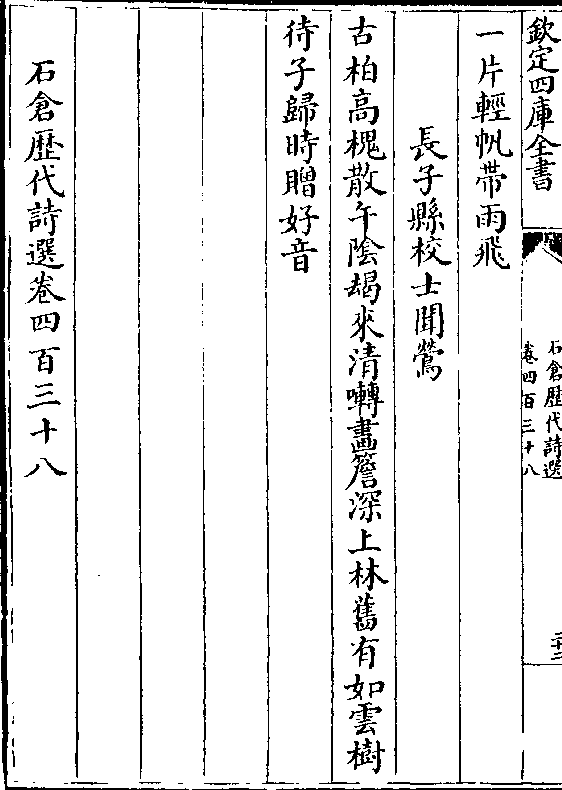 欽定四庫全書
石倉歴代詩選
卷四百三十八
一片輕帆帶雨飛
長子縣校士聞鶯
古柏高槐散午陰朅來清囀畫簷深上林舊有如雲樹
待子歸時贈好音
石倉歴代詩選卷四百三十八